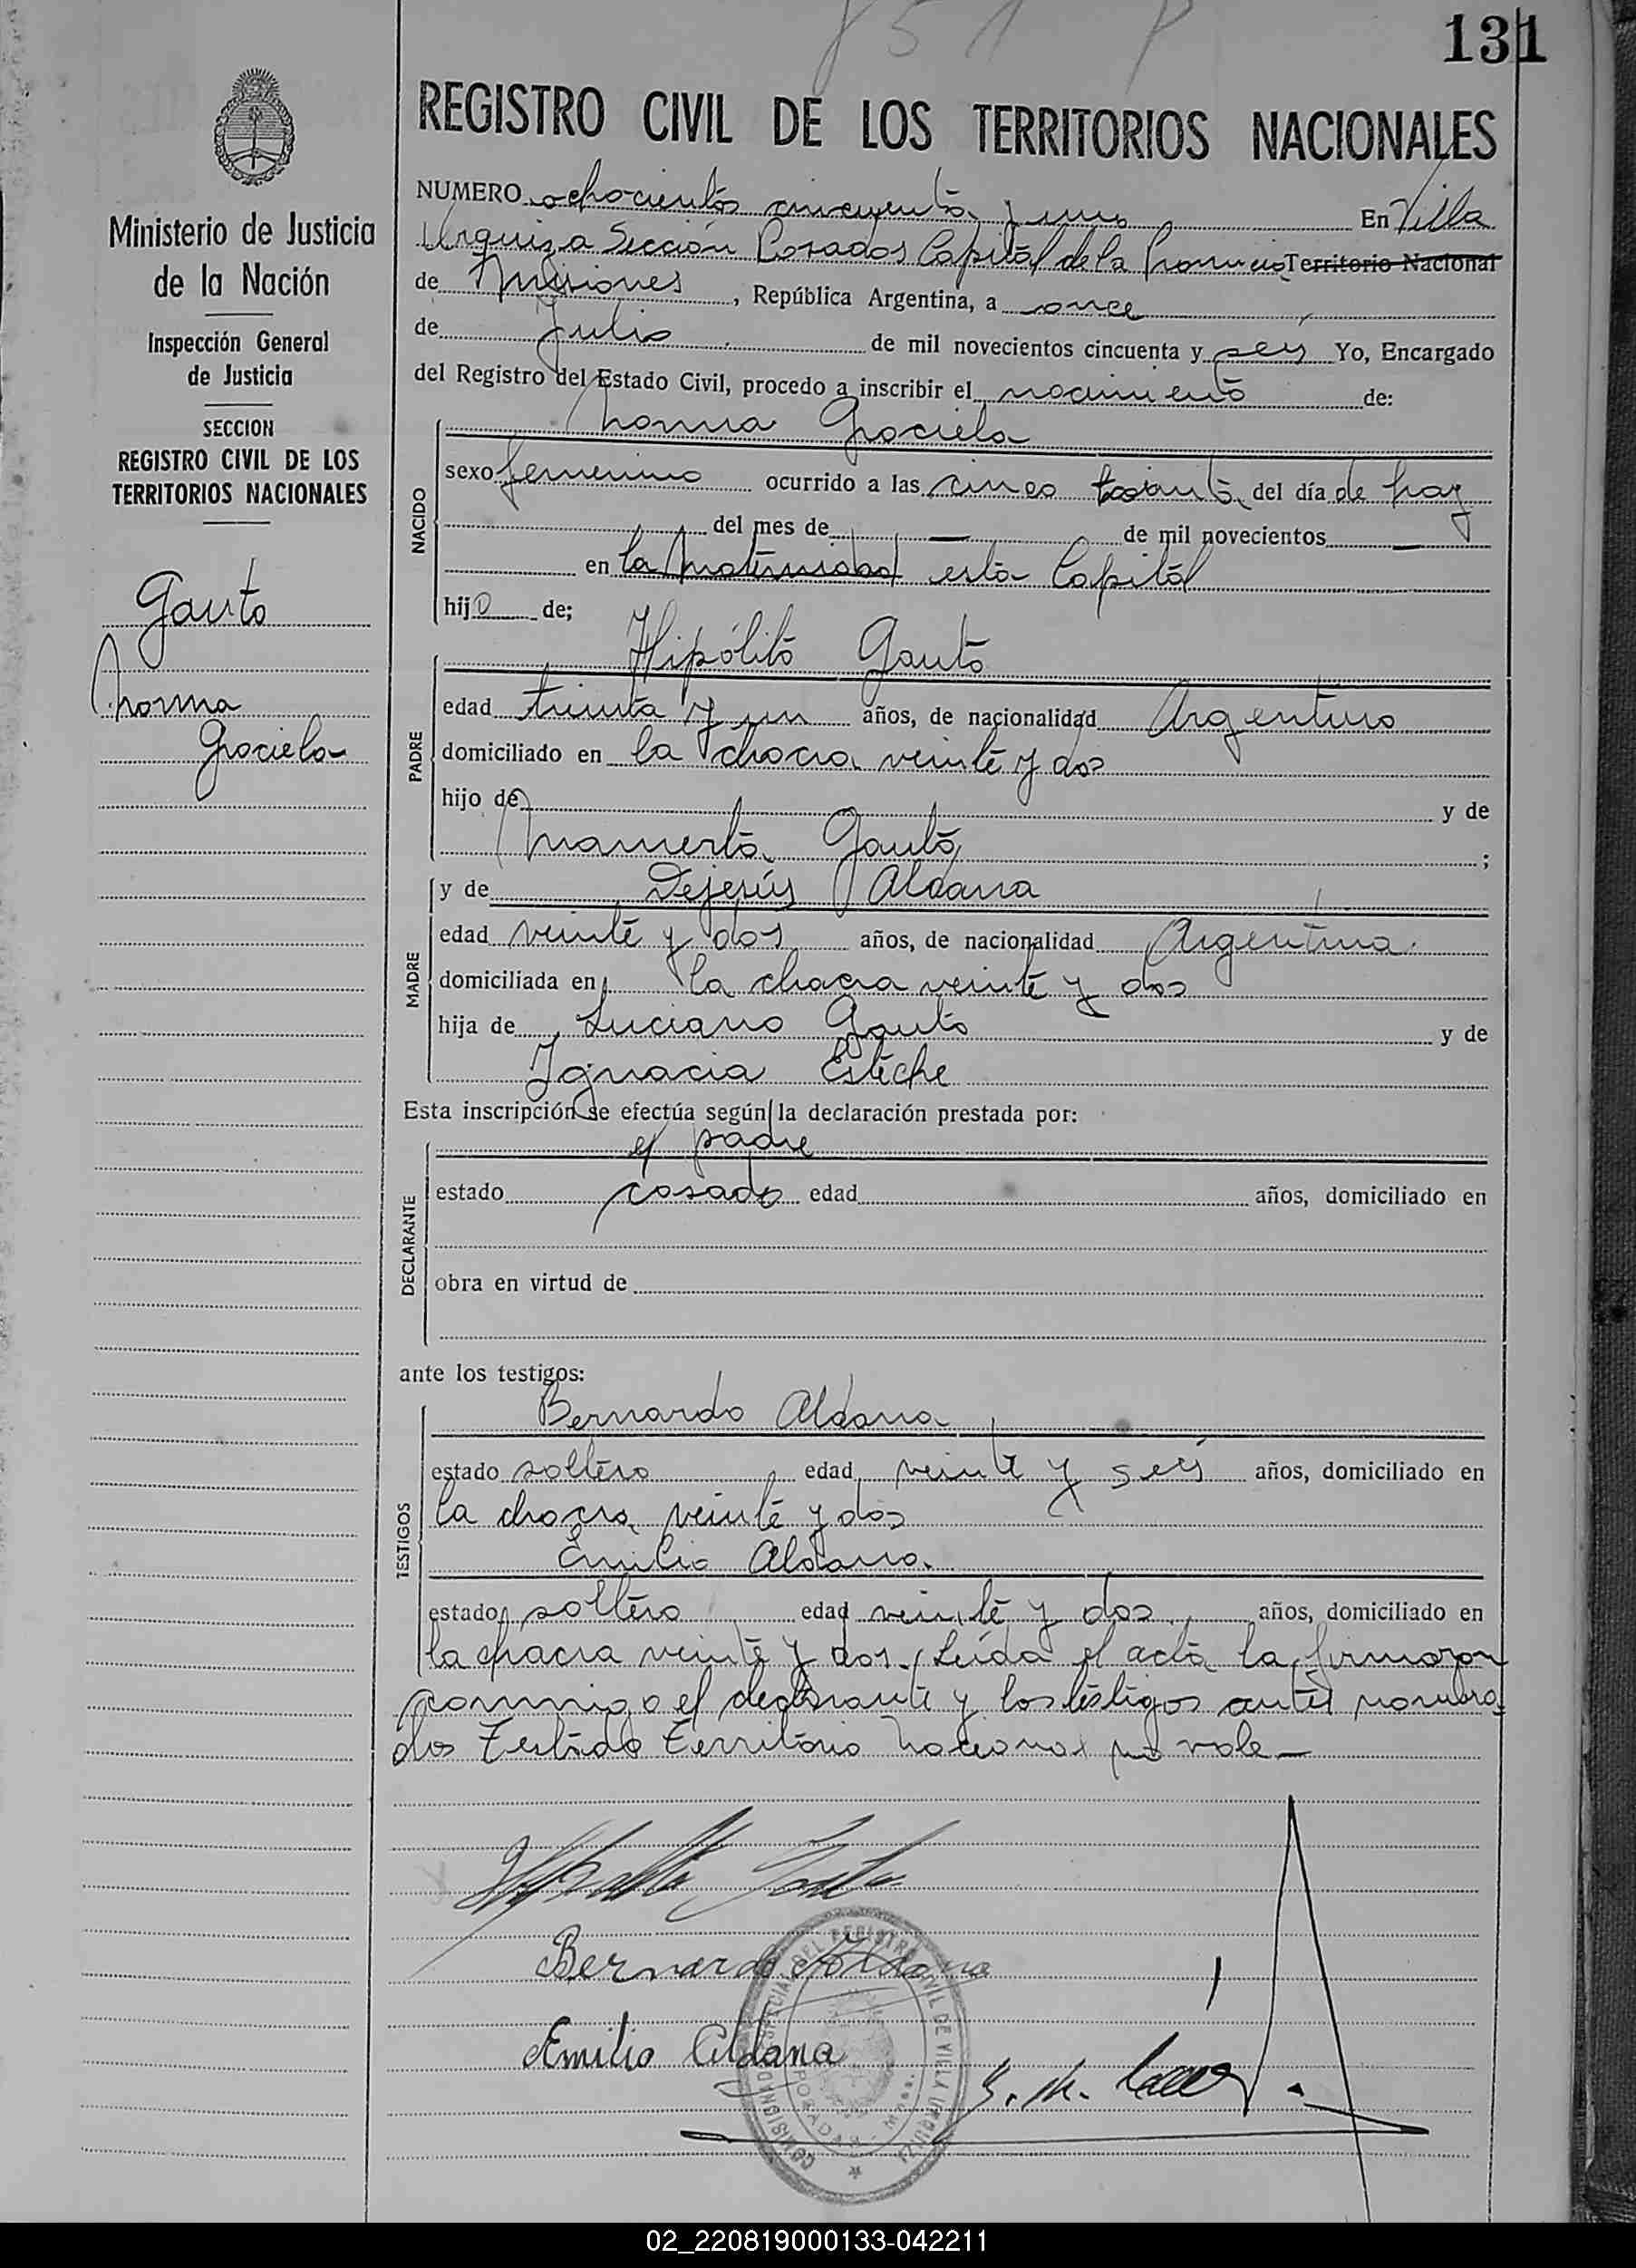 851 P
131
REGISTRO CIVIL DE LOS TERRITORIOS NACIONALES
Ministerio de Justicia
de la Nación
Inspección General
de Justicia
SECCION
REGISTRO CIVIL DE LOS
TERRITORIOS NACIONALES
Gauto
Norma
Graciela
NUMERO ochocientos cincuenta y uno En Villa
Urquiza Sección Posadas Capital de la Provincia Territorio Nacional
de Misiones, República Argentina, a once
de Julio de mil novecientos cincuenta y seis Yo, Encargado
del Registro del Estado Civil, procedo a inscribir el nacimiento de:
NACIDO
Norma Graciela
sexo femenino ocurrido a las cinco treinta del día de hoy
del mes de — de mil novecientos —
en la Maternidad esta Capital
hija de;
PADRE
Hipólito Gauto
edad treinta y un años, de nacionalidad Argentino
domiciliado en la chacra veinte y dos
hijo de y de
Mamerta Gauto ;
MADRE
y de Dejesús Aldana
edad veinte y dos años, de nacionalidad Argentina
domiciliada en la chacra veinte y dos
hija de Luciano Gauto y de
Ignacia Esteche
Esta inscripción se efectúa según la declaración prestada por:
DECLARANTE
el padre
estado casado edad años, domiciliado en
obra en virtud de
ante los testigos:
TESTIGOS
Bernardo Aldana
estado soltero edad veinte y seis años, domiciliado en
la chacra veinte y dos
Emilio Aldana.
estado soltero edad veinte y dos años, domiciliado en
la chacra veinte y dos. Leída el acta la firmaron
conmigo el declarante y los testigos antes nombra=
dos Testado Territorio Nacional no vale—
Hipolito Gauto
Bernardo Aldana
Emilio Aldana
DEL REGISTRO CIVIL DE VILLA URQUIZA
POSADAS - Mnes.
02_220819000133-042211